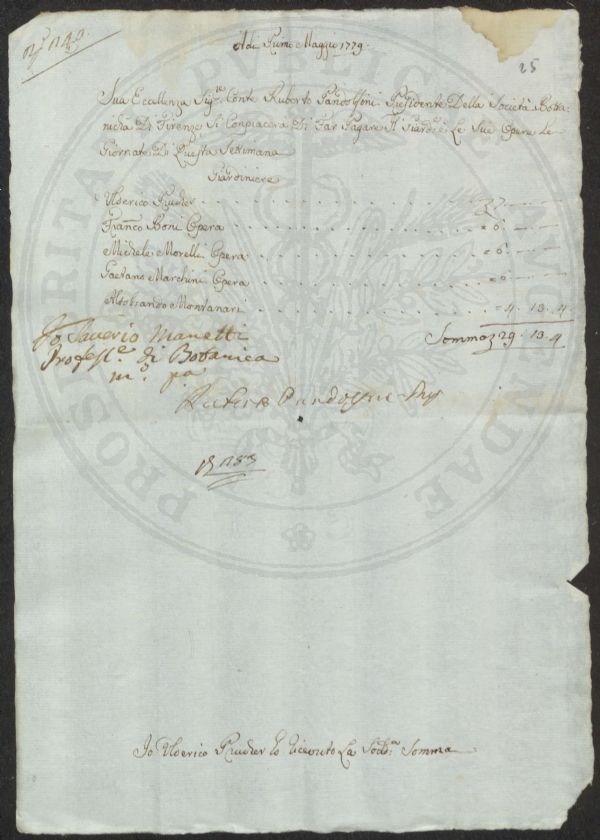 25
Adi Primo Maggio 1779.
Sua Eccellenza Sig.re Conte Ruberto Pandolfini Presidente Della Società Botta=
nicha Di Firenze Si Conpiacera Di Far Pagare Le Sue Opere Le
Giornate Di Questa Settimana
Giardiniere
Ulderico Pruder
Franco Boni Opera = 6
Michele Morelli Opera = 6
Gaetano Marchini Opera = 6
Aldobrando Montanari = 4. 13. 4
Somma 29. 13. 4
Io Saverio Manetti
Profess.e di Botanica
m.o p.a
Io Ulderico Pruder ho ricevuto La Sod.a Somma
PROSPERITATI PUBLICAE AUGENDAE